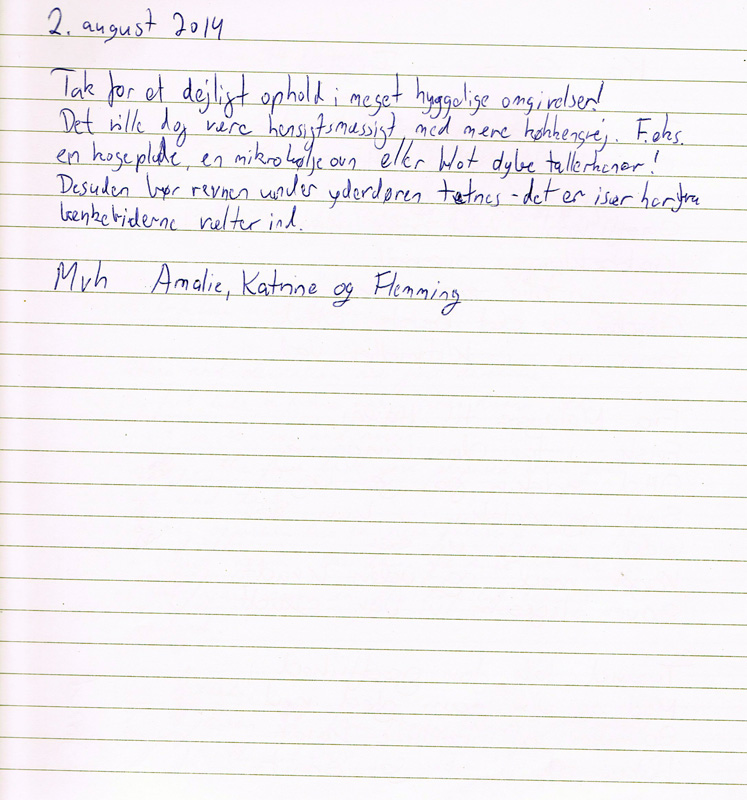 2. august 2014
Tak for et dejligt ophold i meget hyggelige omgivelser!
Det ville dog være hensigtsmæssigt med mere køkkengrej. F.eks.
en kogeplade, en mikrobølgeovn eller blot dybe tallerkener!
Desuden bør revnen under yderdøren tætnes - det er især herfra
bænkebiderne vælter ind.
Mvh Amalie, Katrine og Flemming